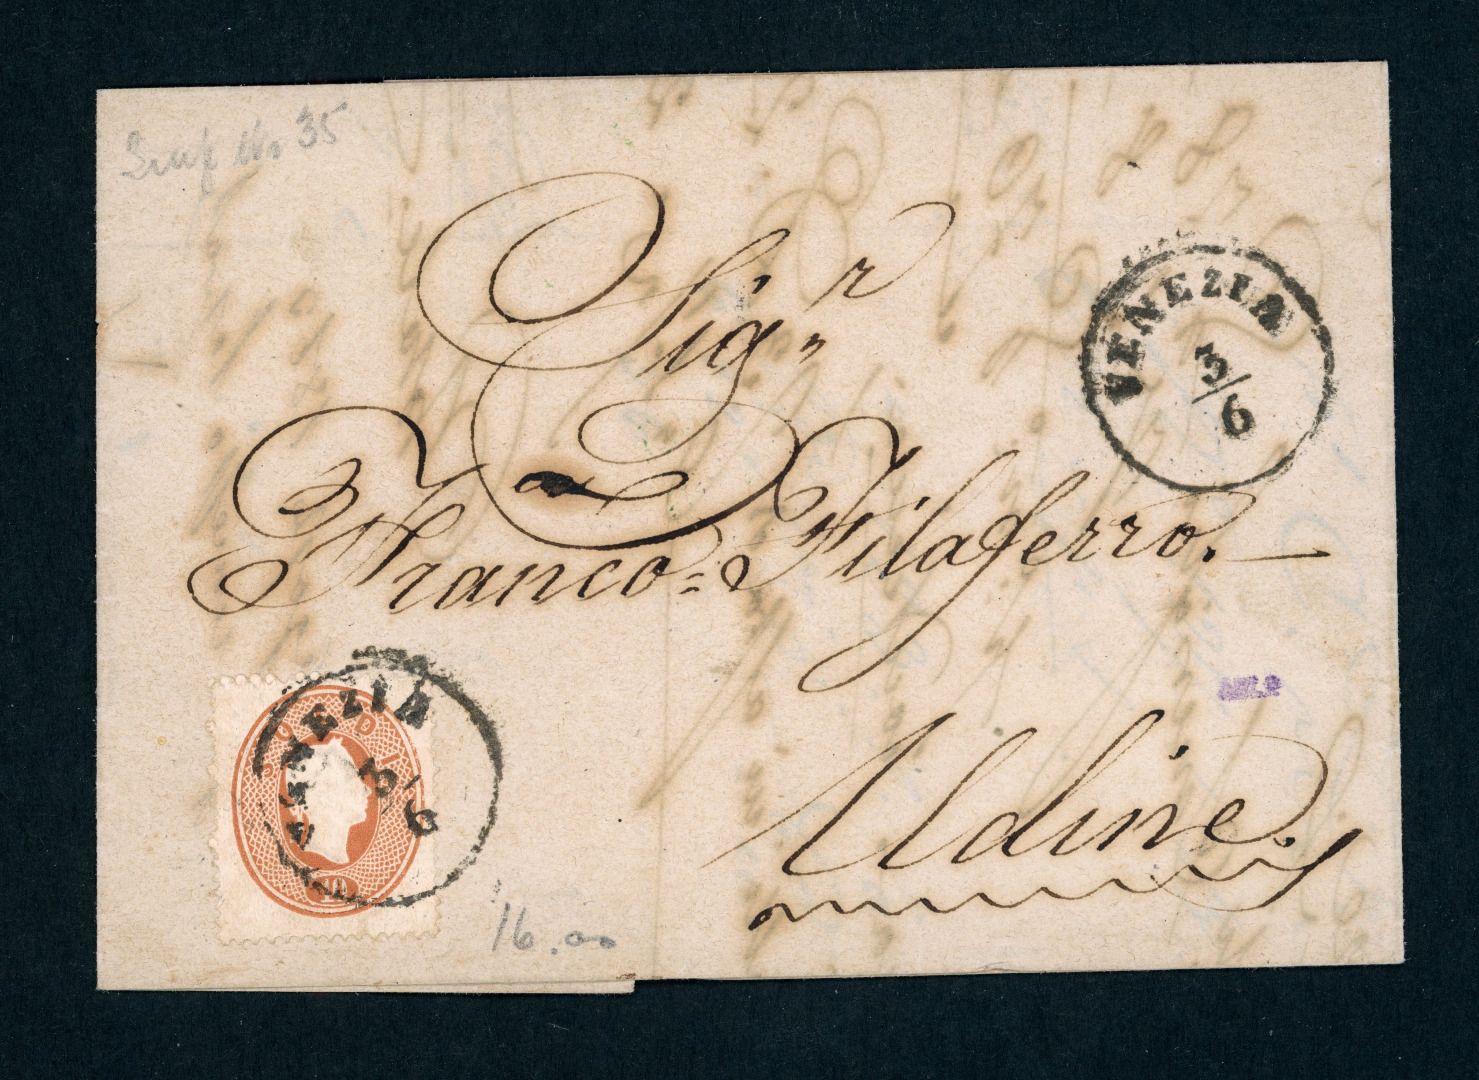 No 35
Sig.r
Franco = Filaferro.
Udine.
VENEZIA
3/6
VENEZIA
3/6
SOLDI
10
16.00